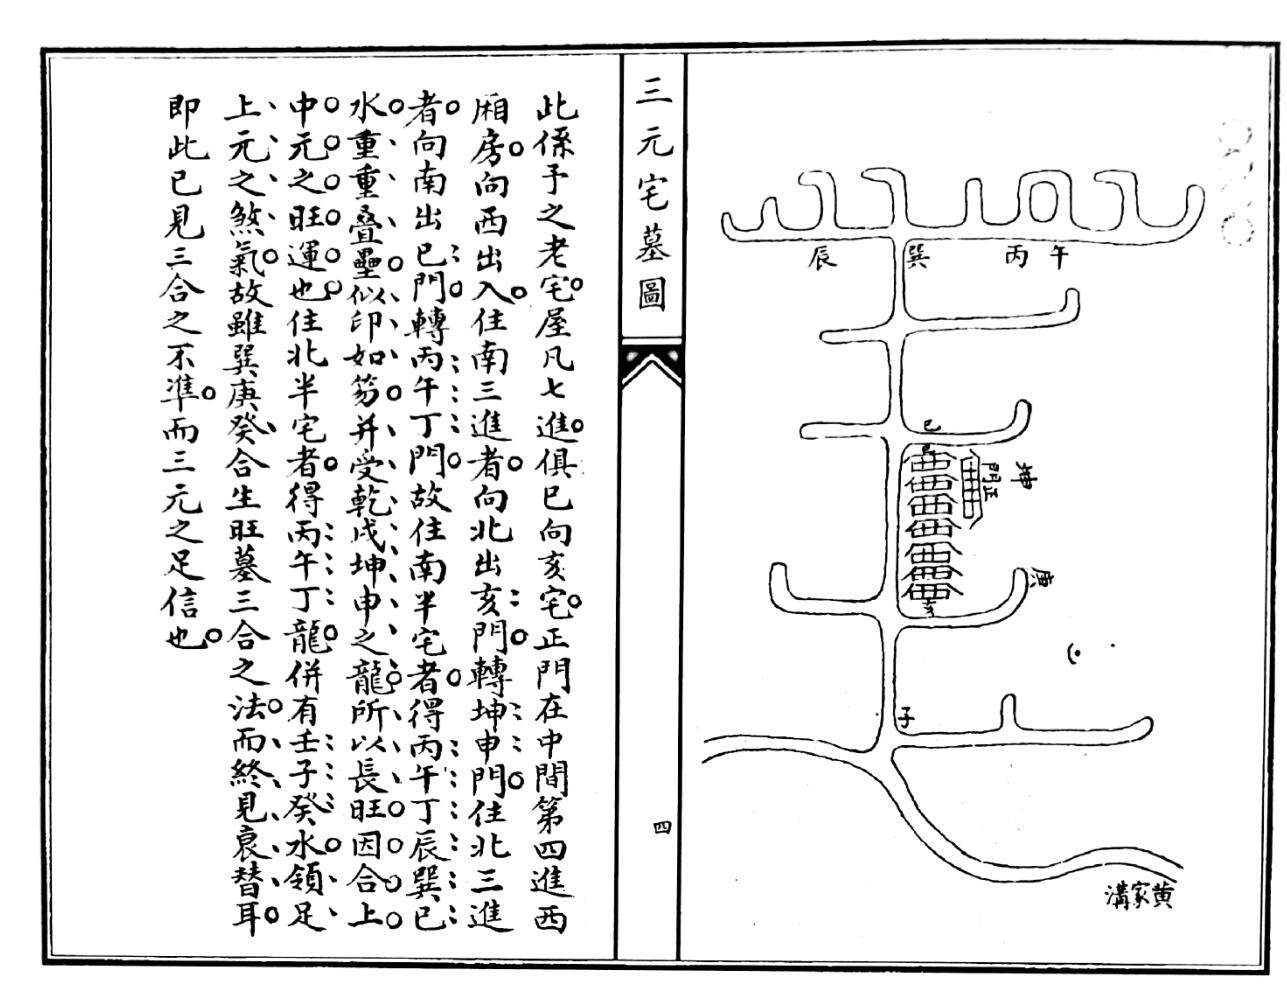 午
丙
巽
辰
巳
坤
正門
亥
庚
子
黄家溝
三元宅墓圖
四
此係予之老宅屋凡七進俱巳向亥宅正門在中間第四進西
厢房向西出入住南三進者向北出亥門轉坤申門住北三進
者向南出巳門轉丙午丁門故住南半宅者得丙午丁辰巽巳
水重重叠壘似印如笏并受乾戌坤申之龍所以長旺因合上
中元之旺運也住北半宅者得丙午丁龍併有壬子癸水領足
上元之煞氣故雖巽庚癸合生旺墓三合之法而終見衰替耳
即此已見三合之不準而三元之足信也